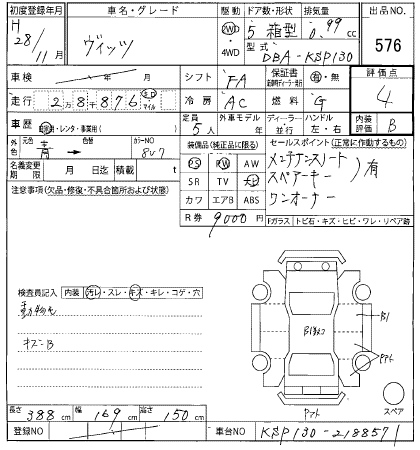 初度登録年月 車名・グレード 駆動 ドア数・形状 排気量 出品NO.
H 28/11月 ヴィッツ 2WD・4WD 5 箱型 0.99 cc 576
型式 DBA-KSP130
車検 年 月 シフト FA 保証書 有・無 評価点
走行 28876 マイル 冷房 AC 燃料 G 4
車歴 自家用・レンタ・事業用( ) 定員 5人 外車モデル 年 ディーラー 並行 ハンドル 左・右 内装評価 B
外色 元色 青 色替 カラーNO 8V7 装備品(純正品に限る) セールスポイント(正常に作動するもの)
名義変更期限 月 日迄 積載 t
PS PW AW メンテナンスノート
SR TV ナビ スペアーキー 有
カワ エアB ABS ワンオーナー
R券 9000円
Fガラス トビ石・キズ・ヒビ・ワレ・リペア跡
注意事項(欠品・修復・不具合箇所および状態)
検査員記入 内装 汚レ・スレ・キズ・キレ・コゲ・穴
キズB
B1
アト
アト
スペア
長さ 388 cm 幅 169 cm 高さ 150 cm
登録NO 車台NO KSP130-2188571